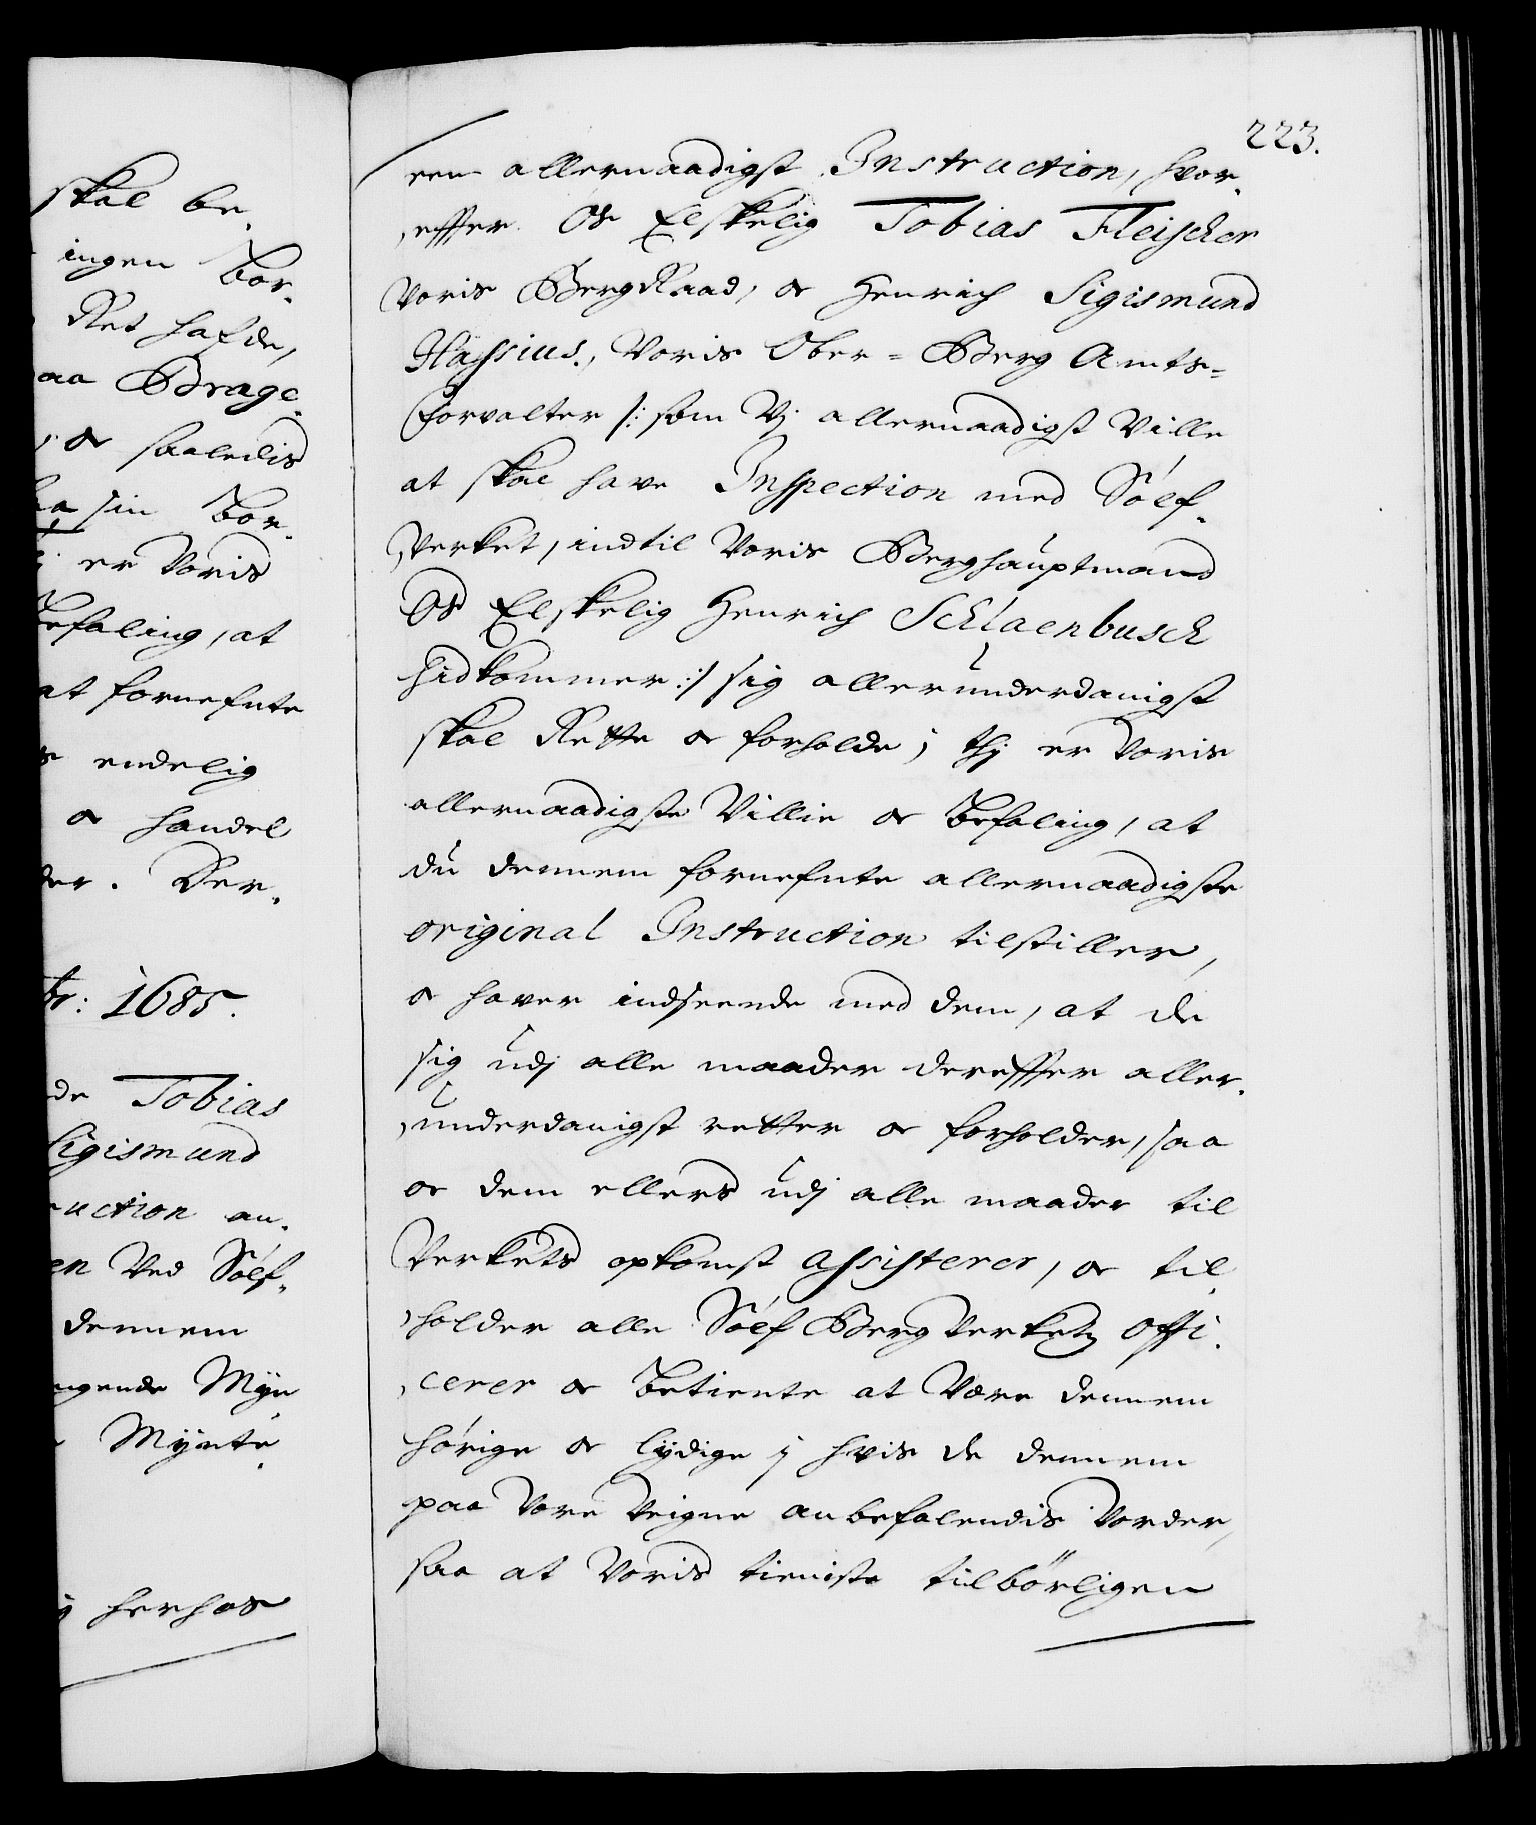 skal be-
ingen Bor-
Ret hafde,
paa Brage-
, oc saaledis
sin Bor-
er Voris
Befaling, at
at fornefnte
endelig
oc handel
der. Der-
br: 1685.
de Tobias
Sigismund
ruction an-
en Ved Sølf-
dennem
Myn
Mÿnte-
herhos
223.
een allernaadigst Instruction, hvor-
effter Os Elskelig Tobias Fleischer
Voris BergRaad, oc Henrich Sigismund
Hassius, Voris Ober= Berg Amts=
forvalter /: som Vj allernaadigst Ville
at skal have Inspection med Sølf-
Verket, indtil Voris Berghauptmand
Os Elskelig Henrich Schlaenbusch
hidkommer :/ sig allerunderdanigst
skal Rette oc forholde; thj er Voris
allernaadigste Villie oc Befaling, at
du dennem fornefnte allernaadigste
original Instruction tilstiller,
oc haver indseende med dem, at de
sig udj alle maader dereffter aller-
underdanigst retter oc forholder, saa
oc dem ellers udj alle maader til
Verkets opkomst assisterer, oc til-
holder alle Sølf BergVerketz Offi-
cerer oc Betiente at Være dennem
hørige oc lydige j hvis de dennem
paa Vore Veigne anbefalendis Vorder,
saa at Voris tieniste tilbørligen